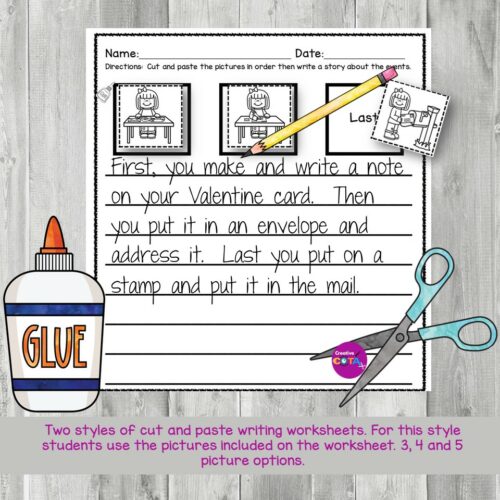 Name: Date:
Directions: Cut and paste the pictures in order then write a story about the events.
Last
First, you make and write a note
on your Valentine card. Then
you put it in an envelope and
address it. Last you put on a
stamp and put it in the mail.
GLUE
Creative
COTA
Two styles of cut and paste writing worksheets. For this style
students use the pictures included on the worksheet. 3, 4 and 5
picture options.